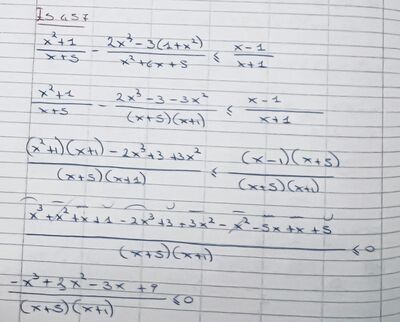 Is a s7
(x²+1)/(x+5) - (2x³-3(1+x²))/(x²+6x+5) ≤ (x-1)/(x+1)
(x²+1)/(x+5) - (2x³-3-3x²)/((x+5)(x+1)) ≤ (x-1)/(x+1)
((x²+1)(x+1)-2x³+3+3x²)/((x+5)(x+1)) ≤ ((x-1)(x+5))/((x+5)(x+1))
(x³+x²+x+1-2x³+3+3x²-x²-5x+x+5)/((x+5)(x+1)) ≤0
(-x³+3x²-3x+9)/((x+5)(x+1)) ≤0